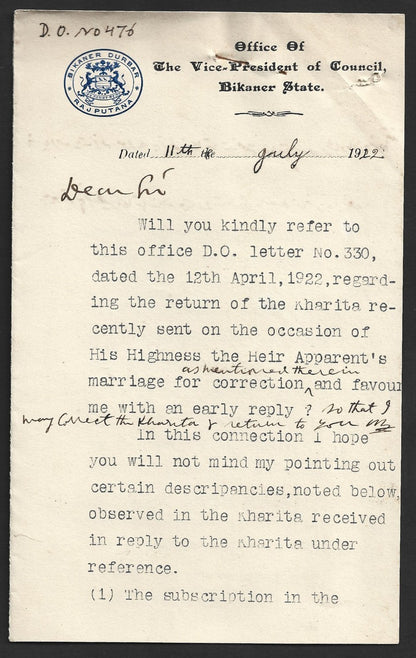 D. O. No 476
BIKANER DURBAR
RAJPUTANA
Office Of
The Vice-President of Council,
Bikaner State.
Dated 11th the July 1922
Dear Sir
Will you kindly refer to
this office D.O. letter No.330,
dated the 12th April,1922,regard-
ing the return of the Kharita re-
cently sent on the occasion of
His Highness the Heir Apparent's
as mentioned therein
marriage for correction and favour
me with an early reply ? so that I
may correct the Kharita & return to you
In this connection I hope
you will not mind my pointing out
certain descripancies,noted below,
observed in the Kharita received
in reply to the Kharita under
reference.
(1) The subscription in the